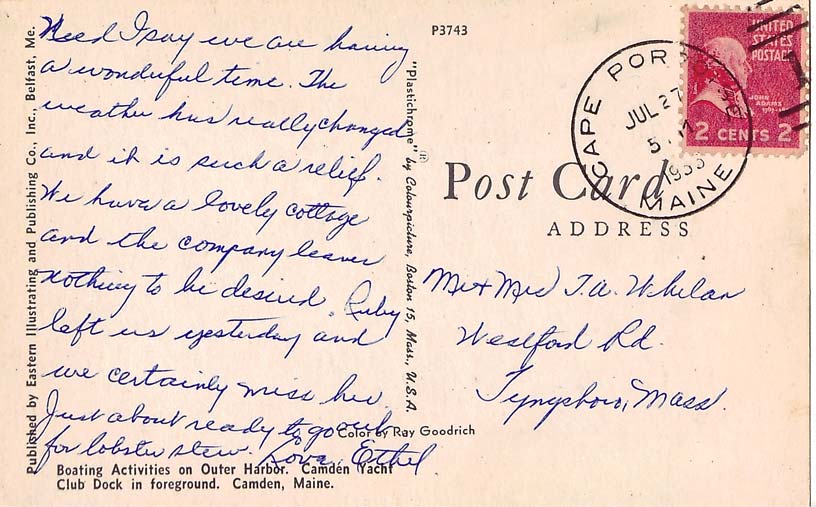 Need I say we are having
a wonderful time. The
weather has really changed
and it is such a relief.
We have a lovely cottage
and the company leaves
nothing to be desired. Ruby
left us yesterday and
we certainly miss her.
Just about ready to go out
for lobster stew. Love, Ethel
Boating Activities on Outer Harbor. Camden Yacht
Club Dock in foreground. Camden, Maine.
Published by Eastern Illustrating and Publishing Co., Inc., Belfast, Me.
"Plastichrome" ® by Colourpicture, Boston 15, Mass., U.S.A.
Color by Ray Goodrich
P3743
Post Card
ADDRESS
Mr + Mrs T.A. Whelan
Westford Rd.
Tyngsboro, Mass.
CAPE PORPOISE
JUL 27
5
MAINE
UNITED
STATES
POSTAGE
JOHN
ADAMS
2 CENTS 2